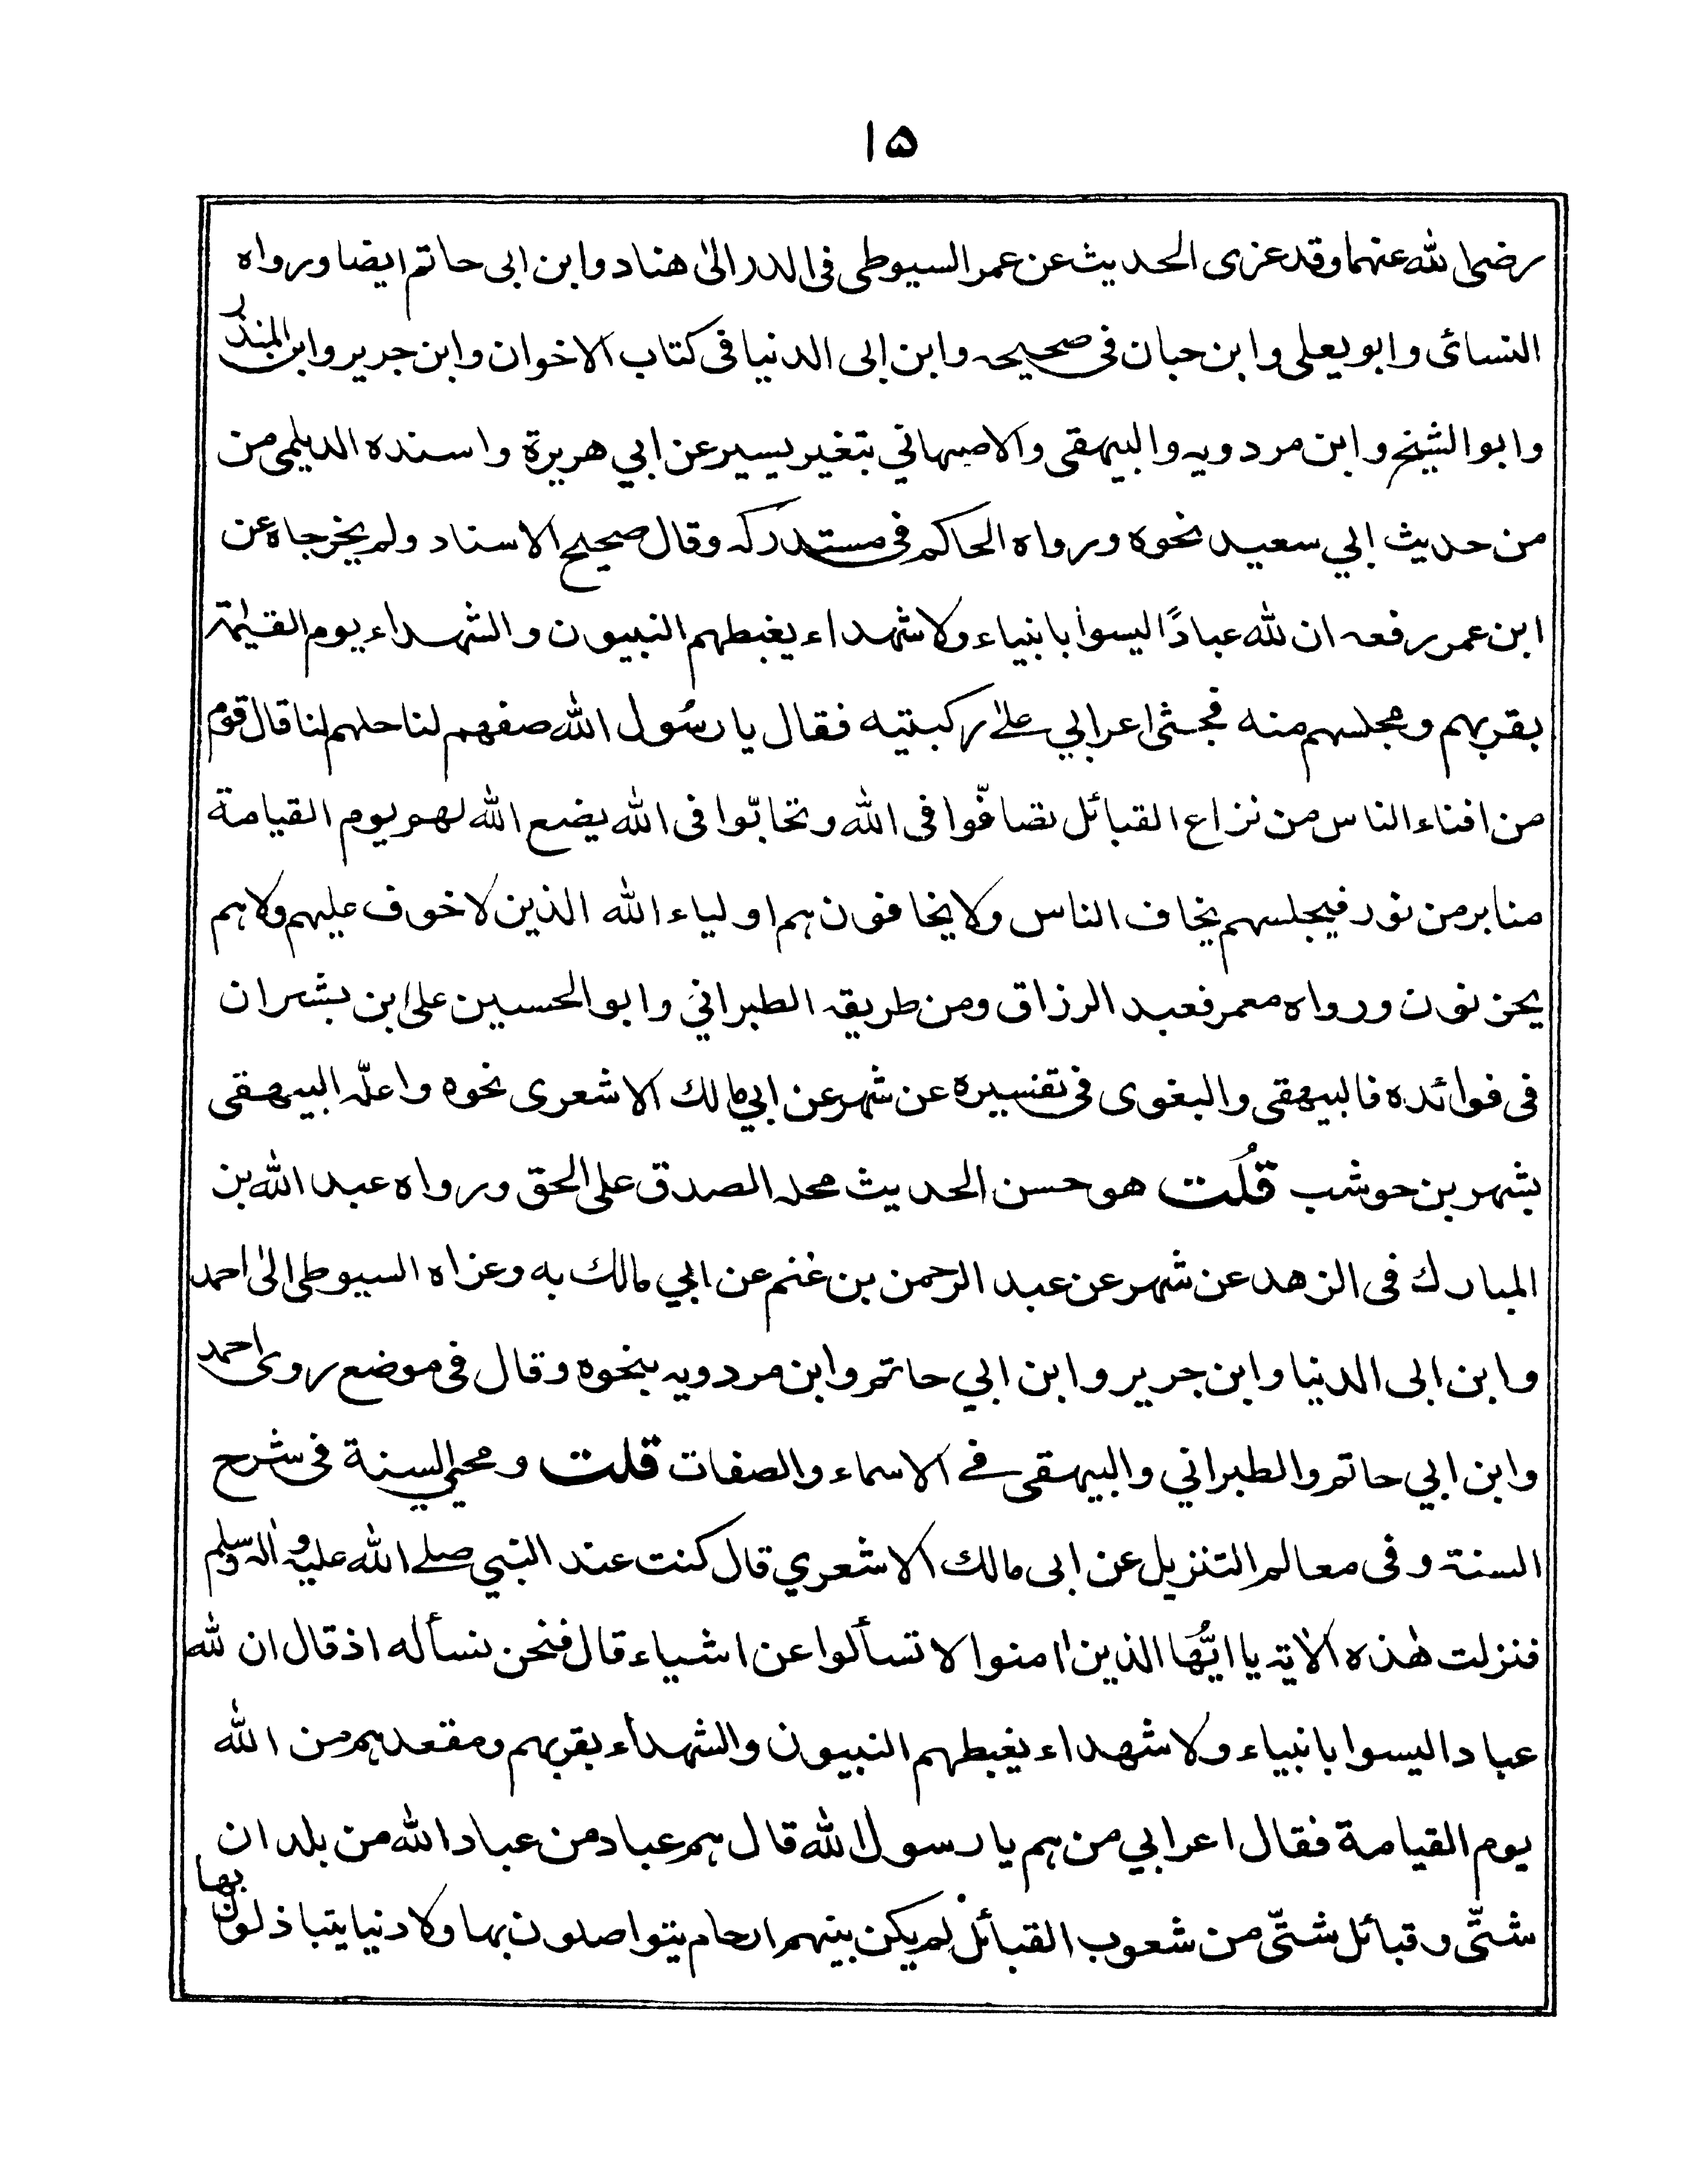 ١٥
رضی الله عنهما وقد عزى الحديث عن عمر السيوطی فی الدر الیٰ هناد وابن ابی حاتم ایضا ورواه
النسائی وابو یعلی وابن حبان فی صحیحہ وابن ابی الدنیا فی کتاب الاخوان وابن جریر وابن المنذر
وابو الشیخ وابن مردویه والبیهقی والاصبهاني بتغیر یسیر عن ابي هریرة واسنده الدیلمی من
من حدیث ابي سعید نحوه ورواه الحاکم فی مستدرکہ وقال صحیح الاسناد ولم یخرجاه عن
ابن عمر رفعه ان لله عبادًا لیسوا بانبیاء ولا شهداء یغبطهم النبیون والشهداء یوم القیٰمة
بقربهم ومجلسهم منه فجثی اعرابي علیٰ رکبتیه فقال یا رسُول الله صفهم لنا حلهم لنا قال قوم
من افناء الناس من نزاع القبائل تصافّوا فی الله وتحابّوا فی الله یضع الله لهم یوم القیامة
منابر من نور فیجلسهم یخاف الناس ولا یخافون هم اولیاء الله الذین لا خوف علیهم ولا هم
یحزنون ورواه معمر فعبد الرزاق ومن طریقه الطبراني وابو الحسین علی ابن بشران
فی فوائده فالبیهقی والبغوی فی تفسیره عن شهر عن ابي مالك الاشعری نحوه واعلّه البیهقی
بشهر بن حوشب قُلت هو حسن الحدیث محله الصدق علی الحق ورواه عبد الله بن
المبارك فی الزهد عن شهر عن عبد الرحمن بن غنم عن ابي مالك به وعزاه السیوطی الیٰ احمد
وابن ابی الدنیا وابن جریر وابن ابي حاتم وابن مردویه بنحوه وقال فی موضع روی احمد
وابن ابي حاتم والطبراني والبیهقی فے الاسماء والصفات قلت ومحیی السنة فی شرح
السنة وفی معالم التنزیل عن ابی مالك الاشعري قال کنت عند النبي صلے الله علیه واٰله وسلم
فنزلت هٰذه الاٰیة یا ایُّها الذین اٰمنوا لا تسألوا عن اشیاء قال فنحن نسأله اذ قال ان لله
عبادا لیسوا بانبیاء ولا شهداء یغبطهم النبیون والشهداء بقربهم ومقعدهم من الله
یوم القیامة فقال اعرابي من هم یا رسول الله قال هم عباد من عباد الله من بلدان
شتّٰی وقبائل شتّی من شعوب القبائل لم یکن بینهم ارحام یتواصلون بها ولا دنیا یتباذلون بها